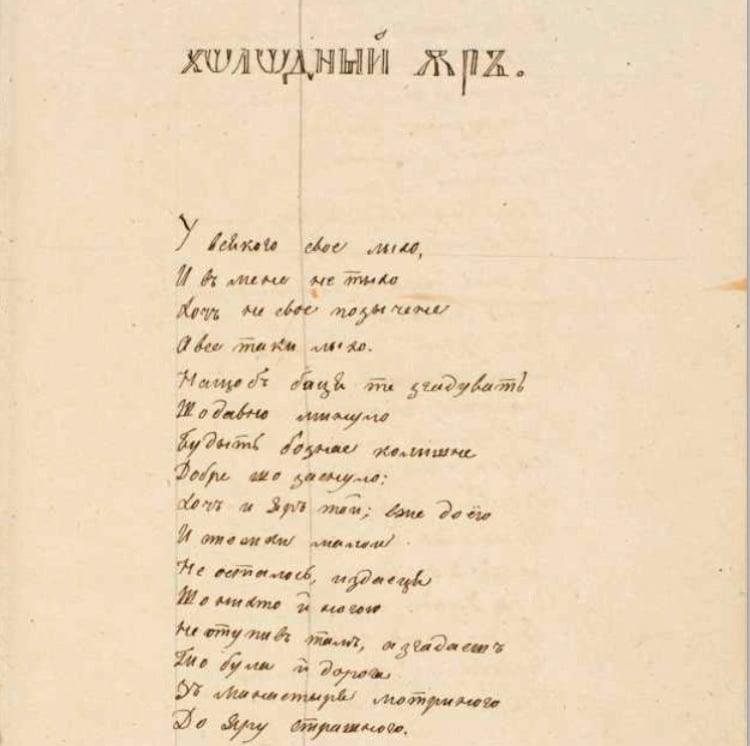 Холодный Яръ.
У всякого свое лыхо,
И въ мене не тыхо
Хочь не свое позычене
А все таки лыхо.
На що бъ бацця те згадувать
Що давно минуло
Будыть бознае колишне
Добре що заснуло:
Хочь и Яръ той; вже до ёго
И стежки малои
Не осталось, издаецця
Що нихто й ногою
Не ступивъ тамъ, а згадаешъ
То була й дорога
Зъ манастыря мотриного
До Яру страшного.